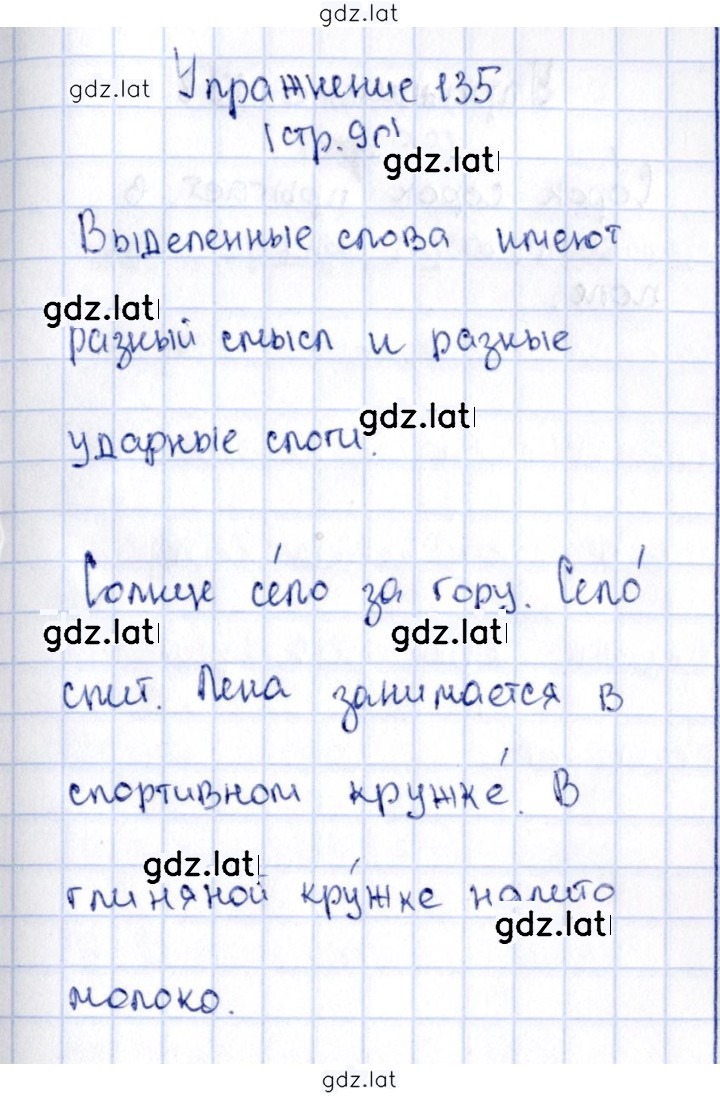 gdz.lat
gdz.lat Упражнение 135
(стр. 90)
gdz.lat
Выделенные слова имеют
gdz.lat
разный смысл и разные
gdz.lat
ударные слоги.
Солнце се́ло за гору. Село́
gdz.lat gdz.lat
спит. Лена занимается в
спортивном кружке́. В
gdz.lat
глиняной кру́жке налито
gdz.lat
молоко.
gdz.lat